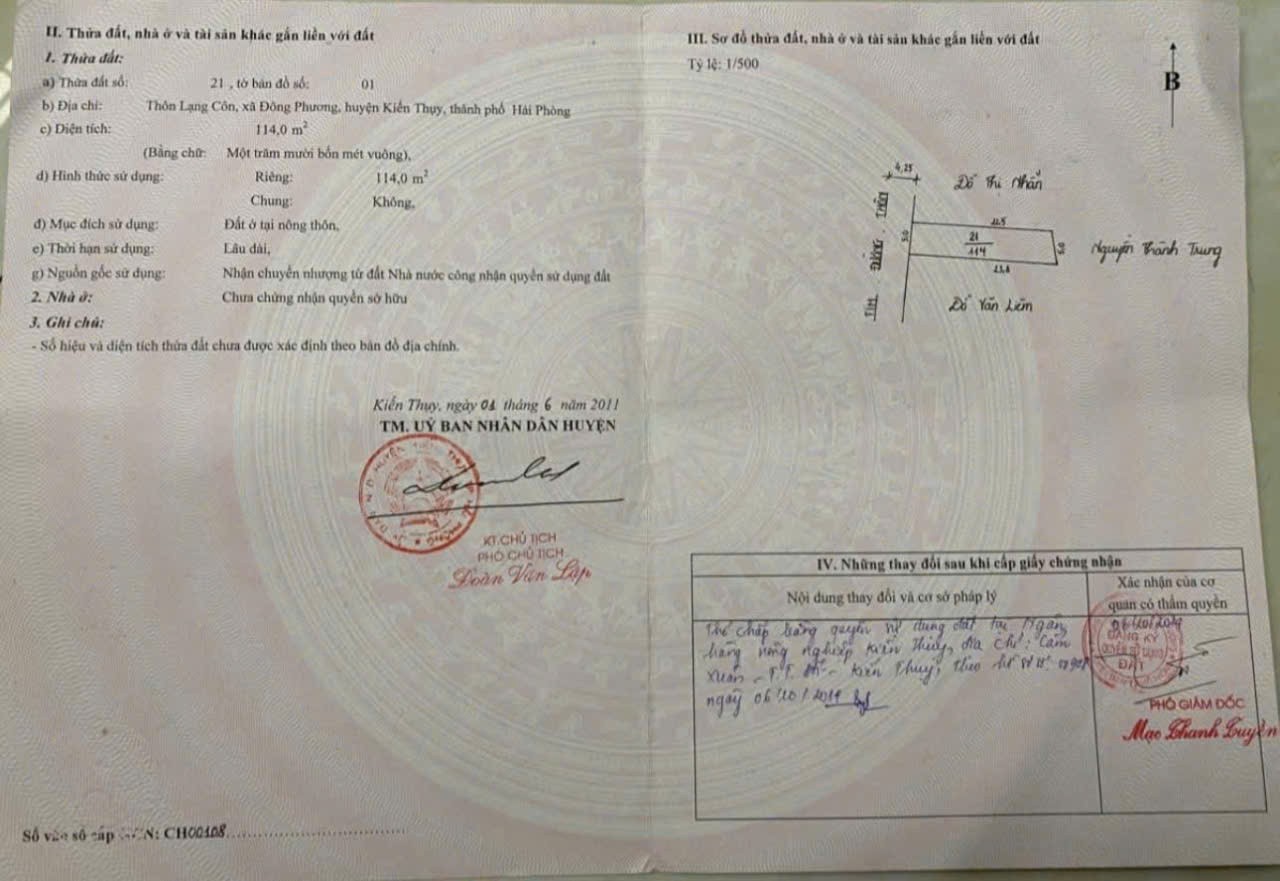 II. Thửa đất, nhà ở và tài sản khác gắn liền với đất
1. Thửa đất:
a) Thửa đất số: 21 , tờ bản đồ số: 01
b) Địa chỉ: Thôn Lạng Côn, xã Đông Phương, huyện Kiến Thụy, thành phố Hải Phòng
c) Diện tích: 114,0 m²
(Bằng chữ: Một trăm mười bốn mét vuông),
d) Hình thức sử dụng: Riêng: 114,0 m²
Chung: Không,
đ) Mục đích sử dụng: Đất ở tại nông thôn,
e) Thời hạn sử dụng: Lâu dài,
g) Nguồn gốc sử dụng: Nhận chuyển nhượng từ đất Nhà nước công nhận quyền sử dụng đất
2. Nhà ở: Chưa chứng nhận quyền sở hữu
3. Ghi chú:
- Số hiệu và diện tích thửa đất chưa được xác định theo bản đồ địa chính.
Kiến Thụy, ngày 01 tháng 6 năm 2011
TM. UỶ BAN NHÂN DÂN HUYỆN
KT.CHỦ TỊCH
PHÓ CHỦ TỊCH
Đoàn Văn Lập
Số vào sổ cấp GCN: CH00108
III. Sơ đồ thửa đất, nhà ở và tài sản khác gắn liền với đất
Tỷ lệ: 1/500
B
4,25
Đỗ Thị Nhẫn
TIM ĐƯỜNG THÔN
5.0
21
114
5.0
Nguyễn Thành Trung
Đỗ Văn Liêm
IV. Những thay đổi sau khi cấp giấy chứng nhận
Nội dung thay đổi và cơ sở pháp lý
Xác nhận của cơ
quan có thẩm quyền
Thế chấp bằng quyền sử dụng đất tại Ngân
hàng nông nghiệp Kiến Thụy, địa chỉ: Cẩm
Xuân - Kiến Thụy, Theo hồ sơ số
ngày 06/10/2014
06/10/2014
ĐĂNG KÝ
QUYỀN SỬ DỤNG
ĐẤT
PHÓ GIÁM ĐỐC
Mạc Thanh Luyện